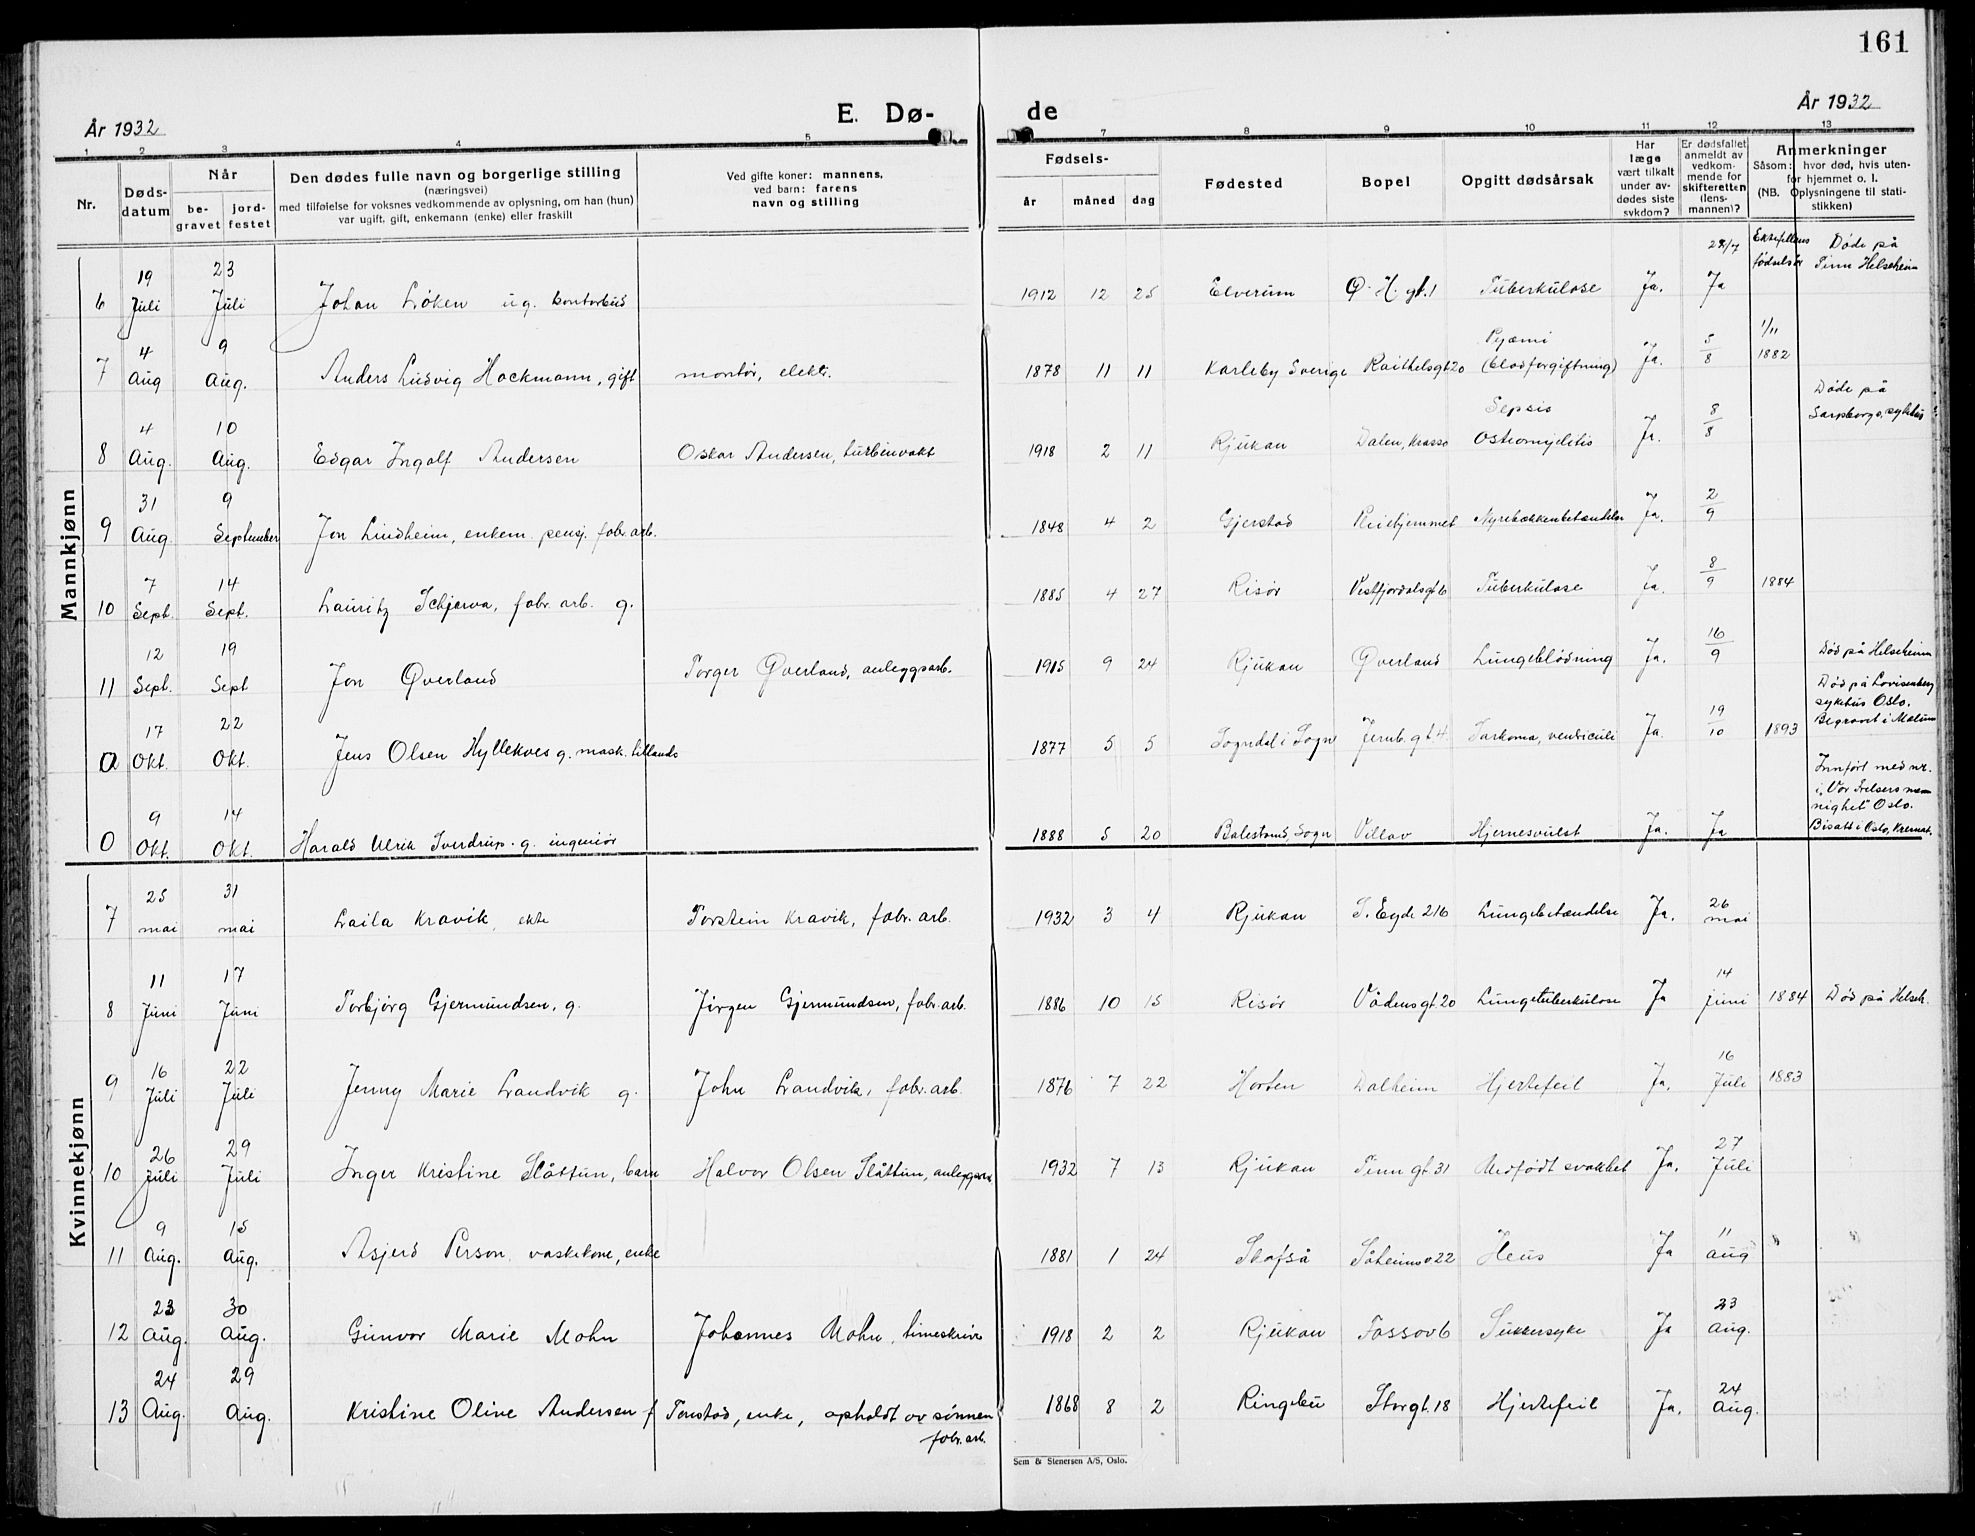 161
År 1932
E. Dø-
de
År 1932
1 2 3 4 5 7 8 9 10 11 12 13
Nr.
Døds-
datum
Når
be-
gravet
jord-
festet
Den dødes fulle navn og borgerlige stilling
(næringsvei)
med tilføielse for voksnes vedkommende av oplysning, om han (hun)
var ugift, gift, enkemann (enke) eller fraskilt
Ved gifte koner: mannens,
ved barn: farens
navn og stilling
Fødsels-
år måned dag
Fødested
Bopel
Opgitt dødsårsak
Har
læge
vært tilkalt
under av-
dødes siste
sykdom?
Er dødsfallet
anmeldt av
vedkom-
mende for
skifteretten
(lens-
mannen)?
Anmerkninger
Såsom: hvor død, hvis uten-
for hjemmet o. l.
(NB. Oplysningene til stati-
stikken)
Ektefellens
fødselsår
Mannkjønn
6 19 Juli 23 Juli Johan Løken ug. kontorbud 1912 12 25 Elverum Ø. H. gt. 1 Tuberkulose Ja. 28/7 Ja Døde på Tinn Helseheim
7 4 Aug 9 Aug. Anders Ludvig Hackmann, gift montør, elektr. 1878 11 11 Karleby Sverige Raithelsgt 20 Pyæmi (blodforgiftning) Ja. 5/8 1/11 1882
8 4 Aug. 10 Aug. Edgar Ingolf Andersen Oskar Andersen, turbinvakt 1918 2 11 Rjukan Dalen, Krosso Sepsis Osteomyelitis Ja. 8/8 Døde på Sarpsborgs sykehus
9 31 Aug. 9 September Jon Lindheim, enkem. pensj. fabr. arb. 1848 4 2 Gjerstad Pleiehjemmet Nyrebekkenbetændelse Ja. 2/9
10 7 Sept. 14 Sept. Lauritz Schjerva, fabr. arb. g. 1885 4 27 Risør Vestfjordalsgt 6 Tuberkulose Ja. 8/9 1884
11 12 Sept. 19 Sept Jon Øverland Torger Øverland, anleggsarb. 1915 9 24 Rjukan Øverland Lungeblødning Ja. 16/9 Død på Helseheim
0 17 Okt. 22 Okt. Jens Olsen Hyllekves g. mask. 1877 5 5 Sogndal i Sogn Jernb. gt 4 Sarkoma, ventriculi Ja. 19/10 1893 Død på Lovisenberg sykehus Oslo. Begravet i Mælum
0 9 Okt. 14 Okt. Harald Ulrik Sverdrup. g. ingeniør 1888 5 20 Balestrand, Sogn Villav Hjernesvulst Ja. Ja Innført med nr. i "Vor Frelsers menighet" Oslo. Bisatt i Oslo, Kremat.
Kvinnekjønn
7 25 mai 31 mai Laila Kravik, ekte Torstein Kravik, fabr. arb. 1932 3 4 Rjukan S. Eyde 216 Lungebetændelse Ja. 26 mai
8 11 Juni 17 Juni Torbjørg Gjermundsen, g. Jørgen Gjermundsen, fabr. arb. 1886 10 15 Risør Vådensgt. 20 Lungetuberkulose Ja 14 juni 1884 Død på Helseh.
9 16 Juli 22 Juli Jenny Marie Landvik g. John Landvik, fabr. arb. 1876 7 22 Horten Dalheim Hjertefeil Ja. 16 Juli 1883
10 26 Juli 29 Juli Inger Kristine Slåttun, barn Halvor Olsen Slåttun, anleggsarb. 1932 7 13 Rjukan Tinn gt. 31 Medfødt svakhet Ja. 27 Juli
11 9 Aug. 15 Aug. Asjerd Person, vaskekone, enke 1881 1 24 Skafså Såheimsv 22 Ileus Ja 11 aug
12 23 Aug. 30 Aug. Gunvor Marie Mohn Johannes Mohn, timeskriver 1918 2 2 Rjukan Fossov 6 Sukkersyke Ja 23 Aug.
13 24 Aug. 29 Aug. Kristine Oline Andersen f Tonstad, enke, opholdt av sønnen fabr. arb. 1868 8 2 Ringebu Storgt. 18 Hjertefeil Ja. 24 Aug.
Sem & Stenersen A/S, Oslo.